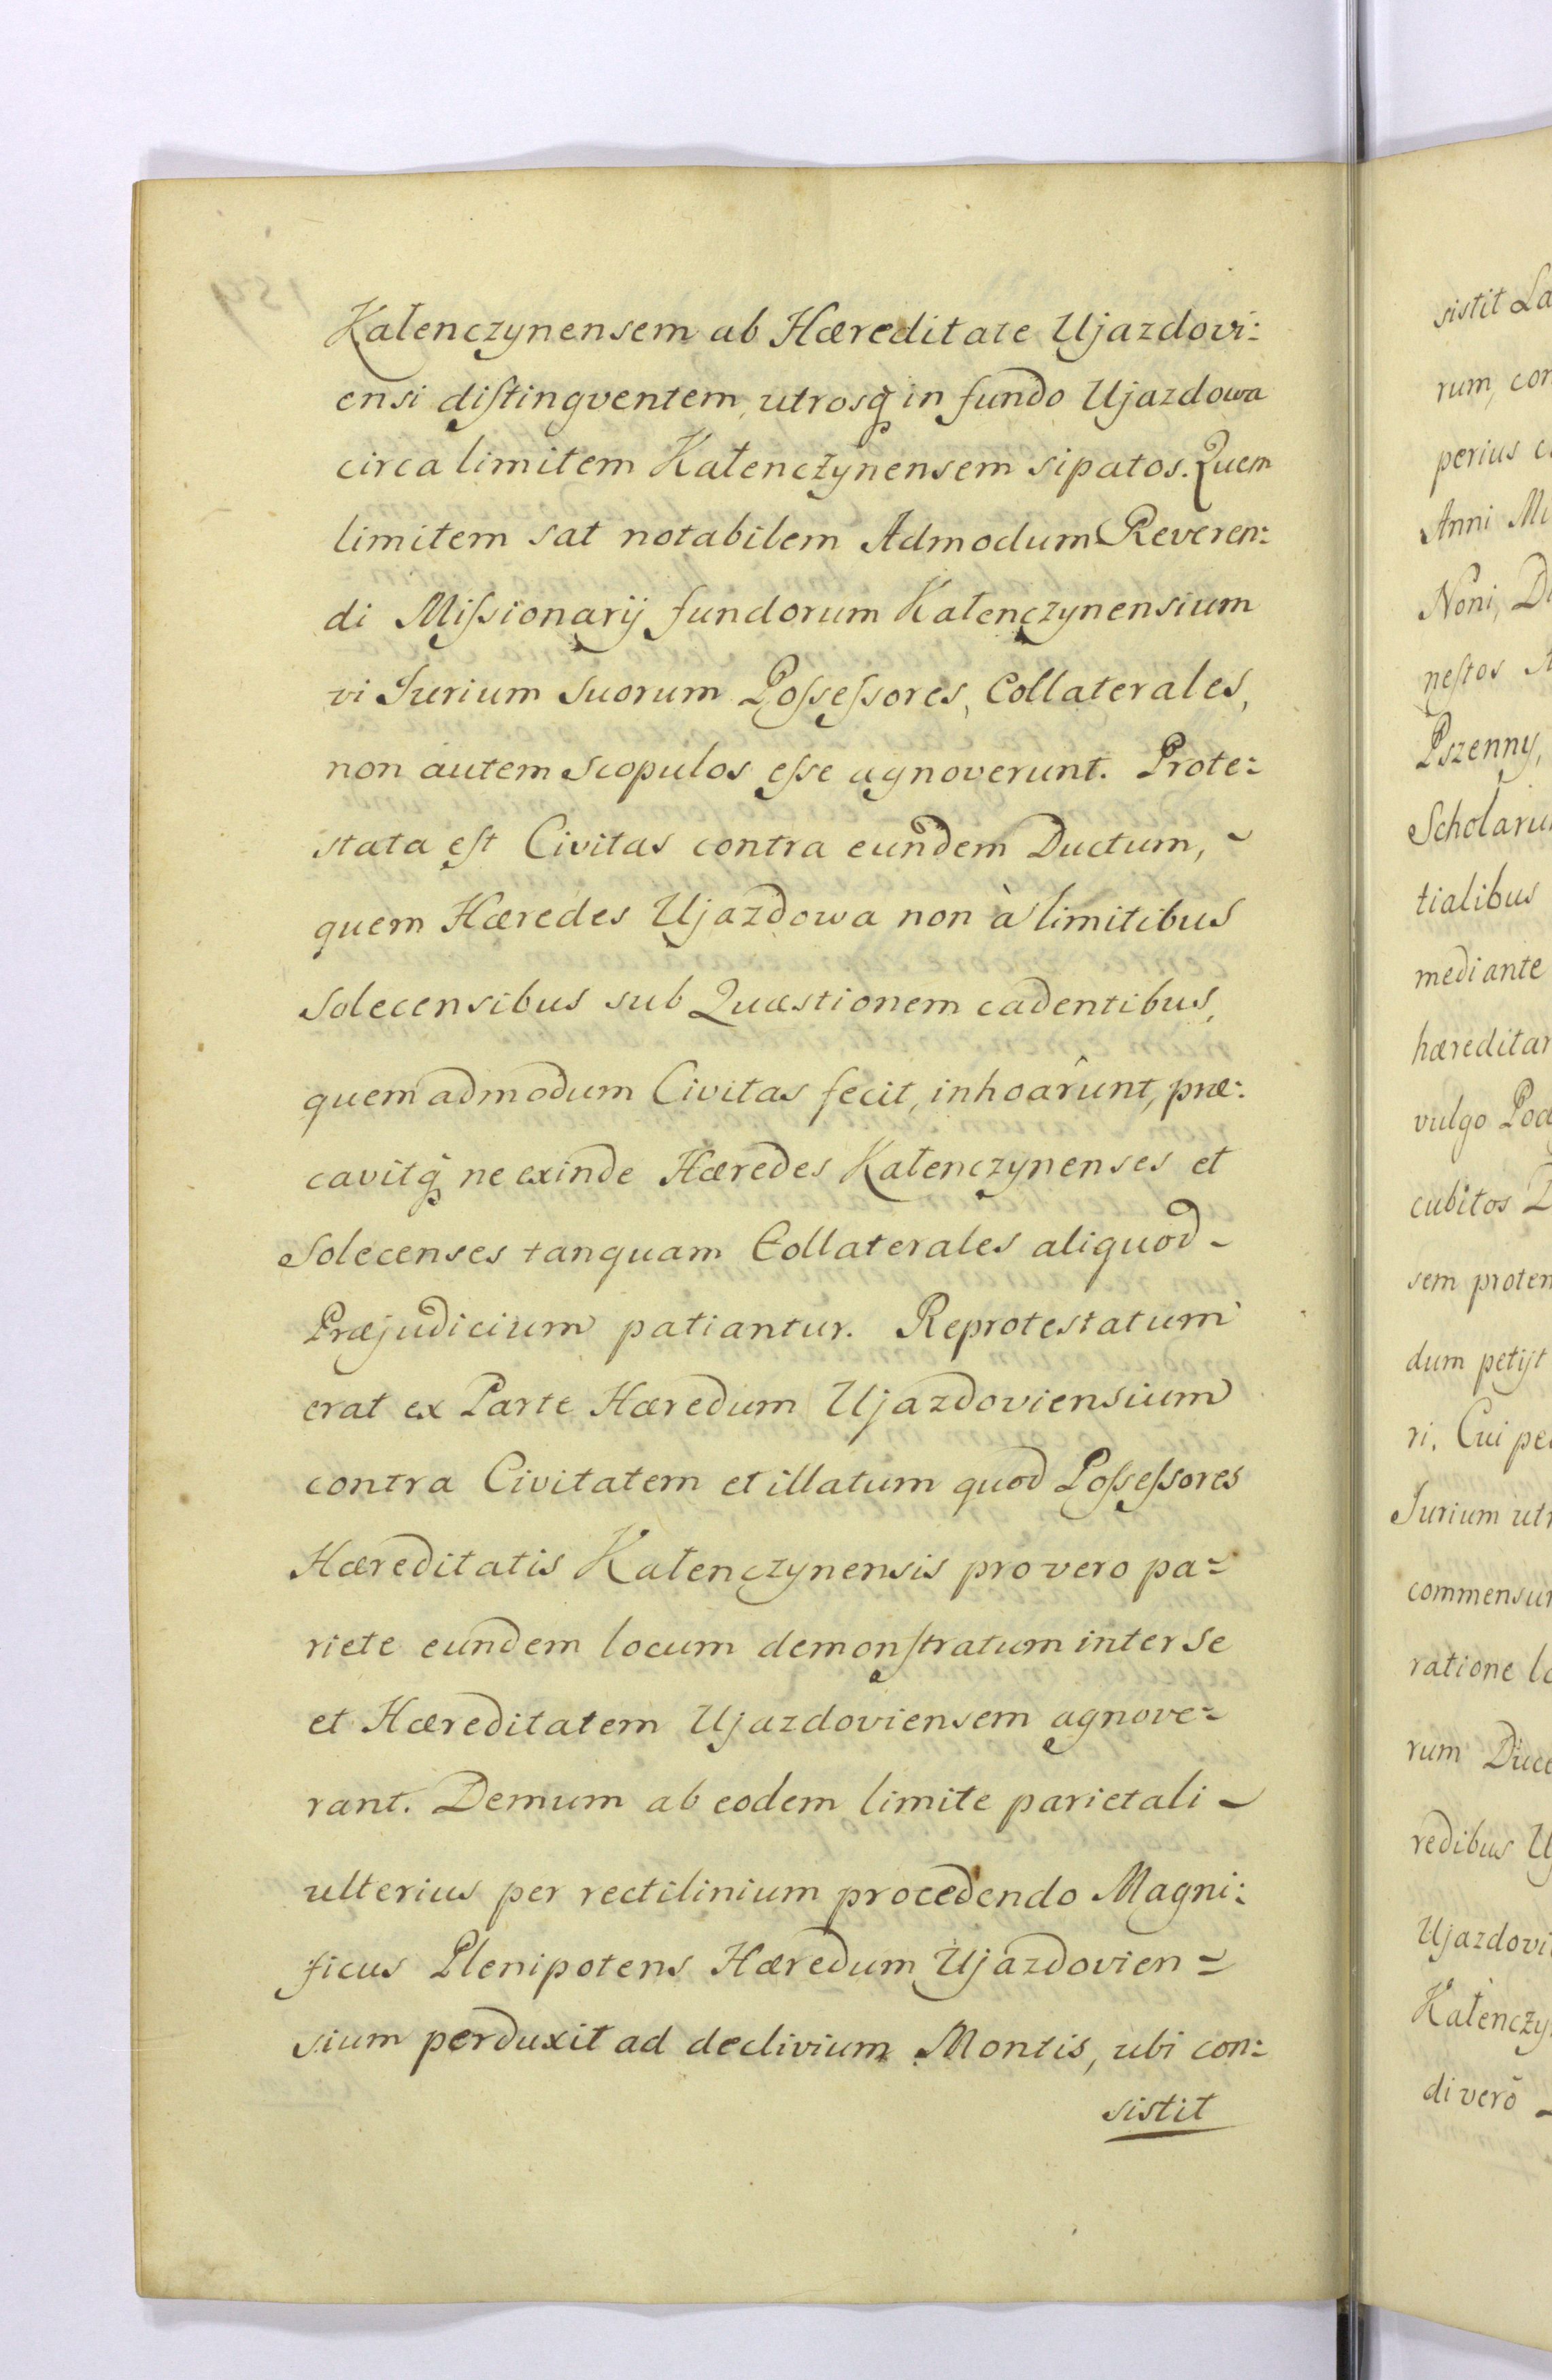 Kałenczynensem ab Hæreditate Ujazdovi:
ensi distingventem, utrosq̃ in fundo Ujazdowa
circa limitem Kałenczynensem sipatos. Quem
limitem sat notabilem Admodum Reveren:
di Missionarij fundorum Kałenczynensium
vi Jurium Suorum Possessores, Collaterales,
non autem Scopulos esse agnoverunt. Prote:
stata est Civitas contra eundem Ductum, ~
quem Hæredes Ujazdowa non à limitibus
Solecensibus sub Quæstionem cadentibus,
quemadmodum Civitas fecit, inhoarûnt, præ:
cavitq̃ ne exinde Hæredes Kałenczynenses et
Solecenses tanquam Collaterales aliquod ~
Præjudicium patiantur. Reprotestatum
erat ex Parte Hæredum Ujazdoviensium
contra Civitatem et illatum quod Possessores
Hæreditatis Kałenczynensis pro vero pa:
riete eundem locum demonstratum inter se
et Hæreditatem Ujazdoviensem agnove:
rant. Demum ab eodem limite parietali ~
ulterius per rectilinium procedendo Magni:
ficus Plenipotens Hæredum Ujazdovien:
sium perduxit ad declivium Montis, ubi con:
sistit
sistit La
rum, con
perius
Anni
Noni,
nestos
Pszenny,
Scholaru
tialibus
mediante
hæreditar
vulgo Pod
cubitos
sem proten
dum petijt
ri. Cui pe
Jurium utr
commensur
ratione lo
rum Duc
redibus U
Ujazdovi
Kałenczy
di verò ~